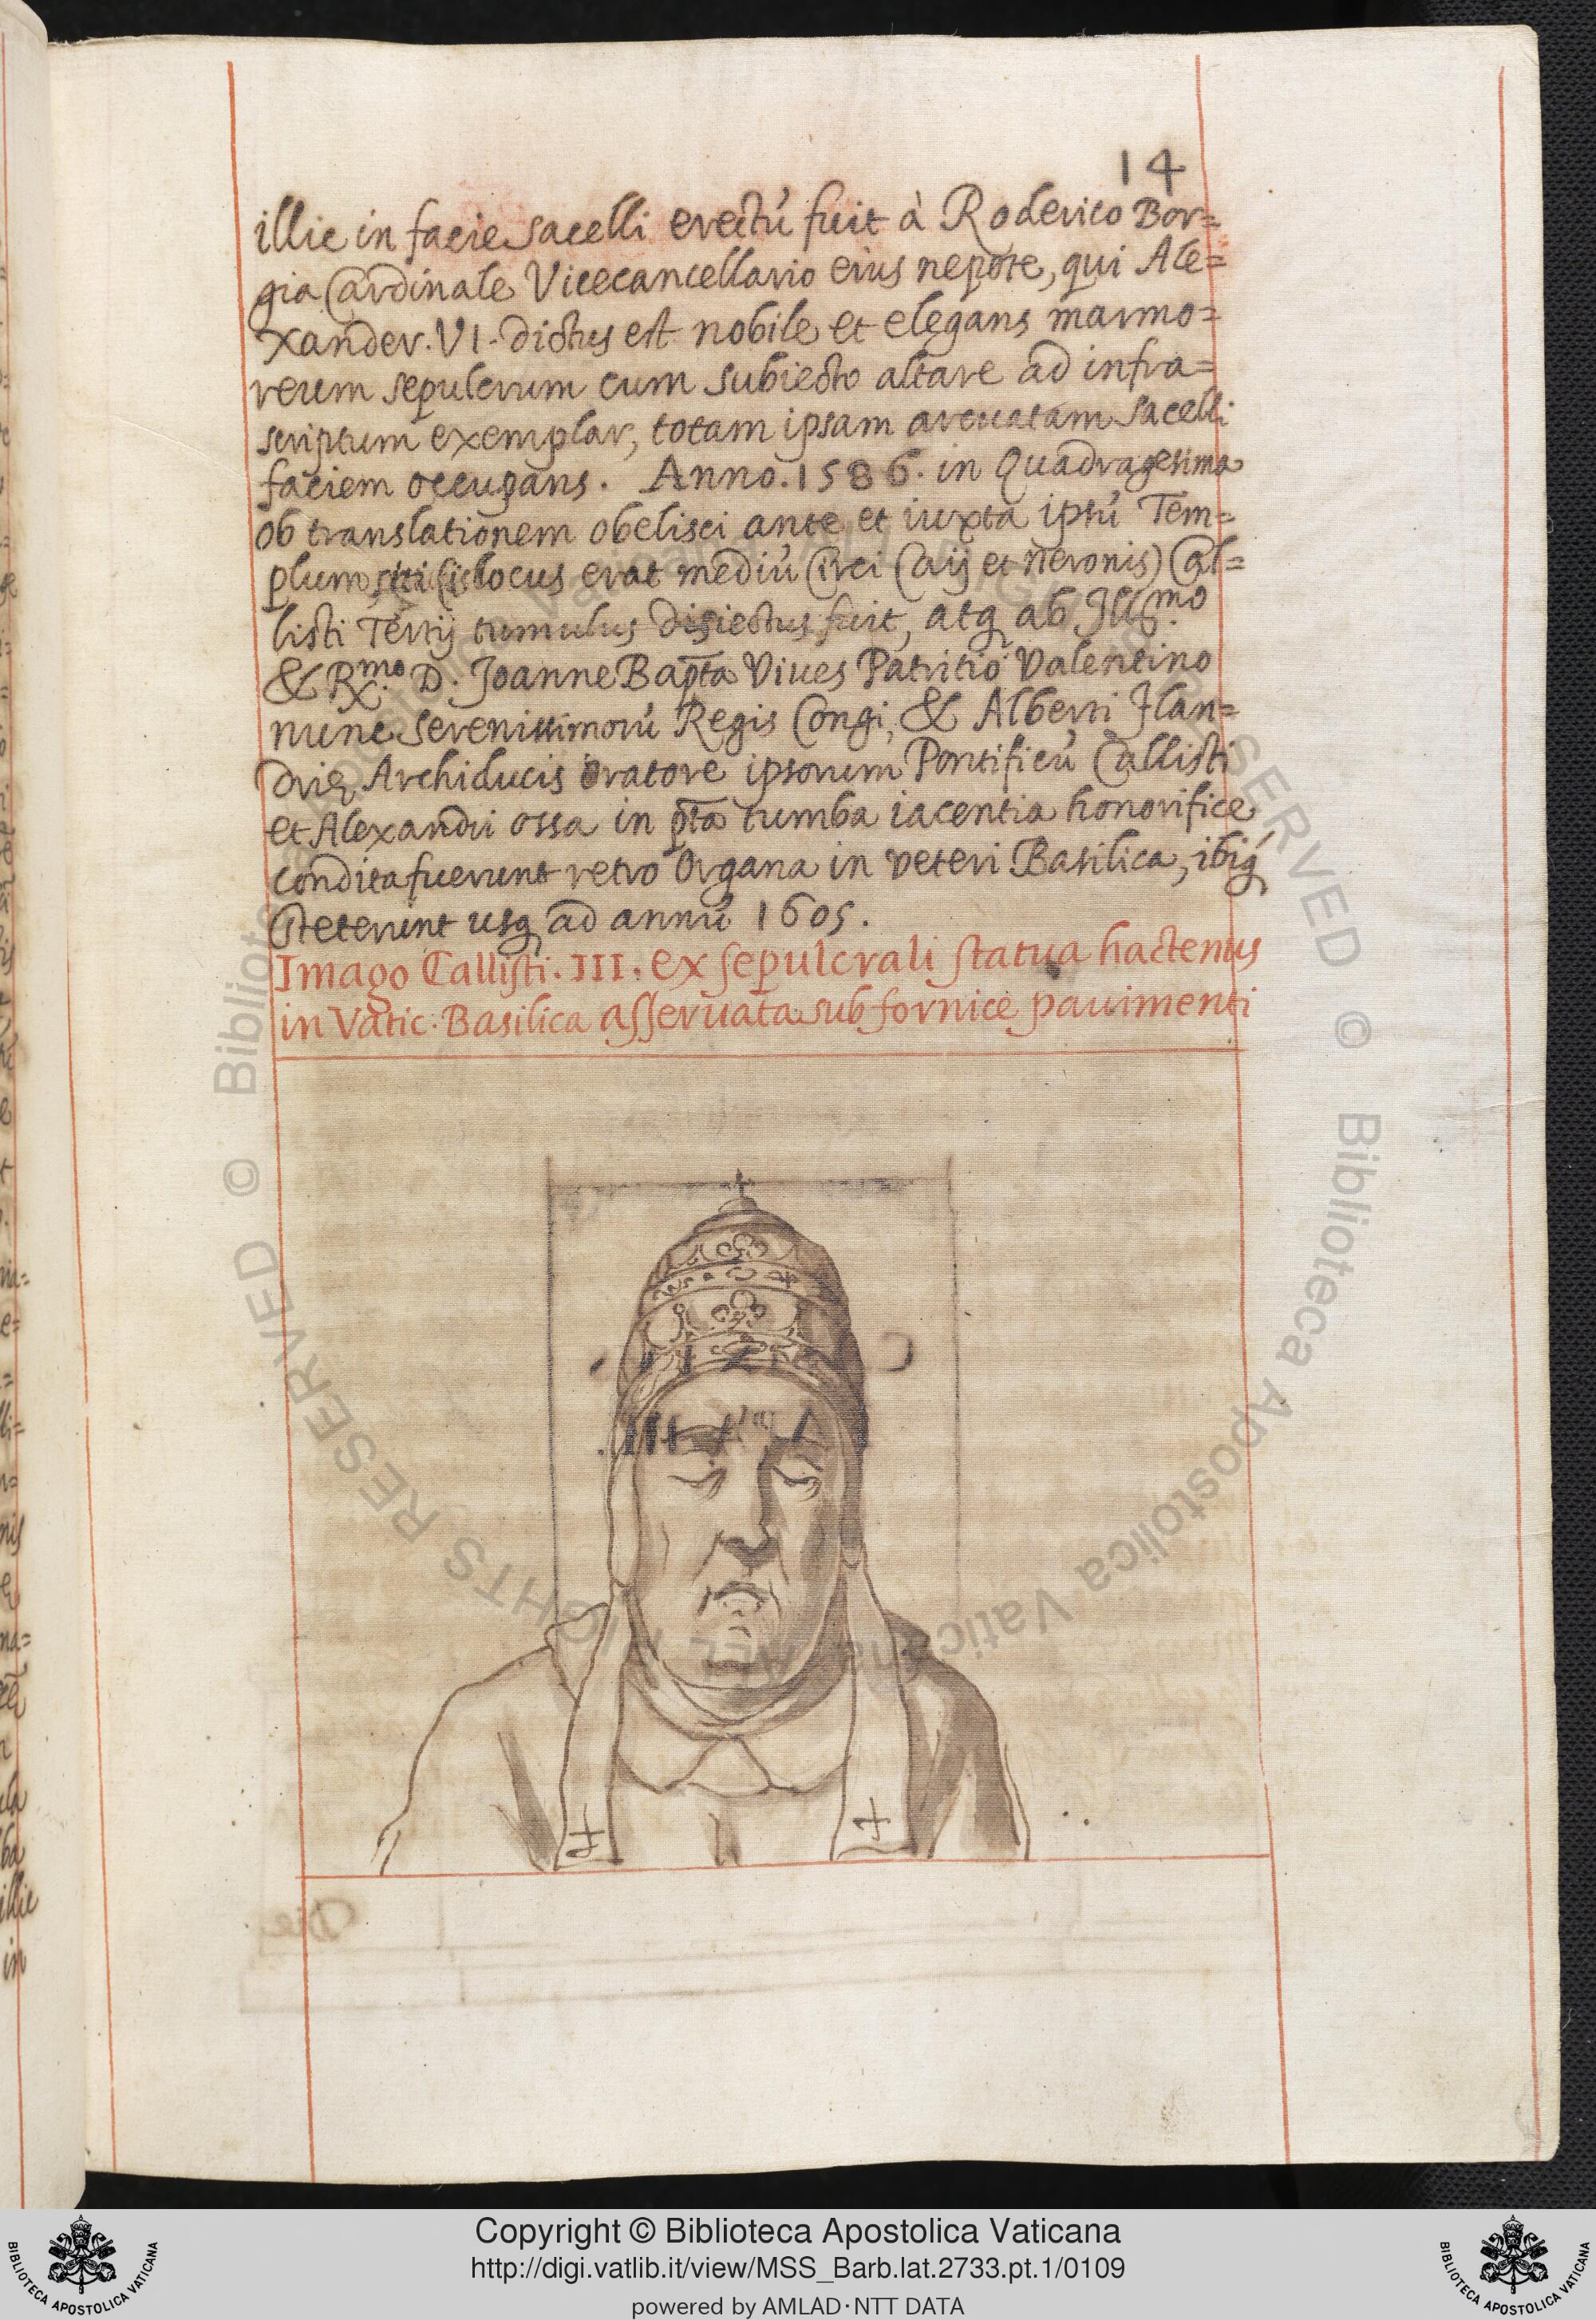 14
illic in facie sacelli erectú fuit à Roderico Bor=
gia Cardinale Vicecancellario eius nepote, qui Ale=
xander. VI. dictus est nobile et elegans marmo=
reum sepulcrum cum subiecto altare ad infra=
scriptum exemplar, totam ipsam arcuatam sacelli
faciem occupans. Anno. 1586. in Quadragesima
ob translationem obelisci ante et iuxta ipsú Tem=
plum locus erat mediú Circi Caij et neronis) Cal=
listi Tertij tumulus disiectus fuit, atq ab Ill.mo
& R.mo D. Joanne Bapta Viues Patritio Valentino
nunc serenissimorú Regis Congi, & Alberti Flan=
drię Archiducis oratore ipsorum Pontificú Callisti
et Alexandri ossa in pta tumba iacentia honorifice
condita fuerunt retro Organa in veteri Basilica, ibiq
steterunt usq ad annú 1605.
Imago Callisti. III. ex sepulcrali statua hactenus
in Vatic. Basilica asseruata sub fornice pauimenti
© Biblioteca Apostolica Vaticana ALL RIGHTS RESERVED © Biblioteca Apostolica Vaticana ALL RIGHTS RESERVED
Copyright © Biblioteca Apostolica Vaticana
http://digi.vatlib.it/view/MSS_Barb.lat.2733.pt.1/0109
powered by AMLAD·NTT DATA
BIBLIOTECA APOSTOLICA VATICANA
BIBLIOTECA APOSTOLICA VATICANA